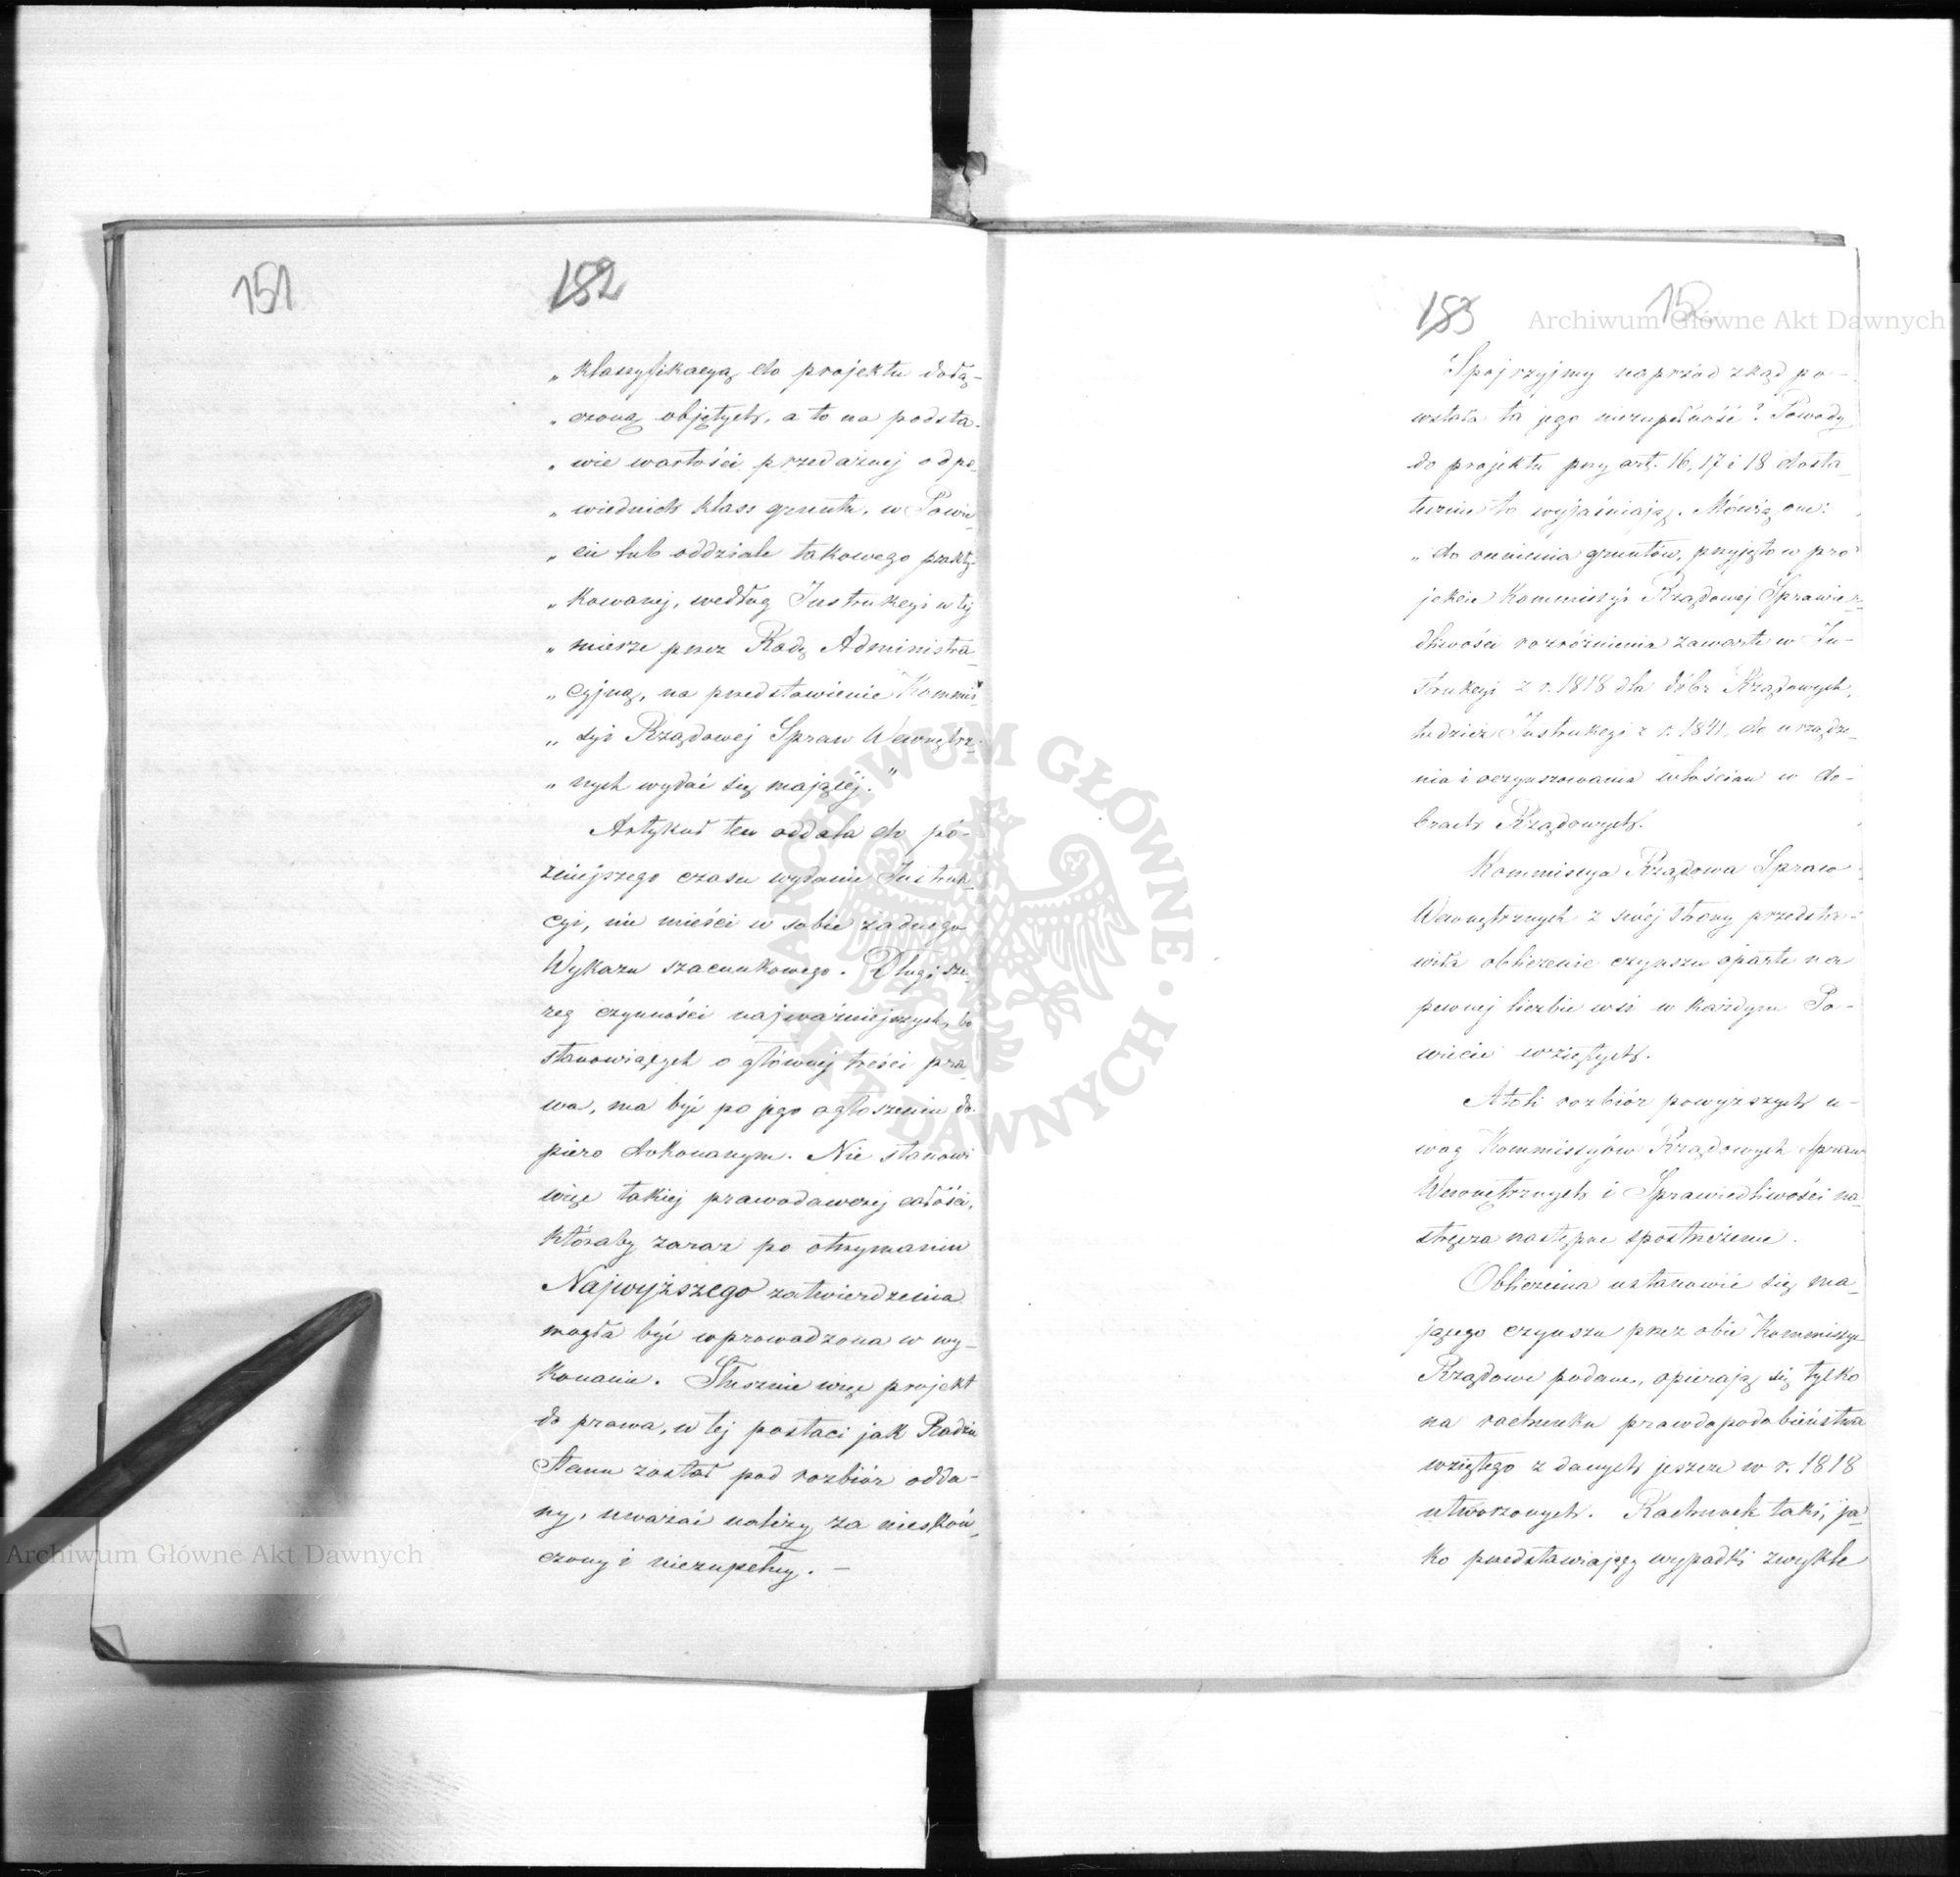 151
182
„ klassyfikacyą do projektu dołą-
„ czoną objętych, a to na podsta-
„ wie wartości przedażnej odpo-
„ wiednich klass gruntu, w Powie-
„ cie lub oddziale takowego prakty-
„ kowanej, według Instrukcyi w tej
„ mierze przez Radę Administra-
„ cyjną, na przedstawienie Kommis-
„ syi Rządowej Spraw Wewnętrz-
„ nych wydać się mającej."
Artykuł ten oddala do pó-
źniejszego czasu wydanie Instruk-
cyi, nie mieści w sobie żadnego
Wykazu szacunkowego. Długi sze-
reg czynności najważniejszych, bo
stanowiących o głównej treści pra-
wa, ma być po jego ogłoszeniu do-
piero dokonanym. Nie stanowi
więc takiej prawodawczej całości,
któraby zaraz po otrzymaniu
Najwyższego zatwierdzenia
mogła być wprowadzona w wy-
konanie. Słusznie więc projekt
do prawa, w tej postaci jak Radzie
Stanu został pod rozbiór odda-
ny, uważać należy za nieskoń-
czony i niezupełny. —
183
152
Spojrzyjmy naprzód zkąd po-
wstała ta jego niezupełność? Powody
do projektu przy art. 16, 17 i 18 dosta-
tecznie to wyjaśniają. Mówią one:
„ do ocenienia gruntów, przyjęto w pro-
jekcie Kommissyi Rządowej Sprawie-
dliwości rozróżnienia zawarte w In-
strukcyi z r. 1818 dla dóbr Rządowych,
tudzież Instrukcyi z r. 1841, do urządze-
nia i oczynszowania włościan w do-
brach Rządowych.
Kommissya Rządowa Spraw
Wewnętrznych z swéj strony przedsta-
wiła obliczenie czynszu oparte na
pewnej liczbie wsi w każdym Po-
wiecie wziętych.
Atoli rozbiór powyższych u-
wag Kommissyów Rządowych Spraw
Wewnętrznych i Sprawiedliwości na-
stręcza następne spostrzeżenie.
Obliczenia ustanowić się ma-
jącego czynszu przez obie Kommissye
Rządowe podane, opierają się tylko
na rachunku prawdopodobieństwa
wziętego z danych jeszcze w r. 1818
utworzonych. Rachunek taki, ja-
ko przedstawiający wypadki zwykle
Archiwum Główne Akt Dawnych
Archiwum Główne Akt Dawnych
ARCHIWUM GŁÓWNE • AKT DAWNYCH •